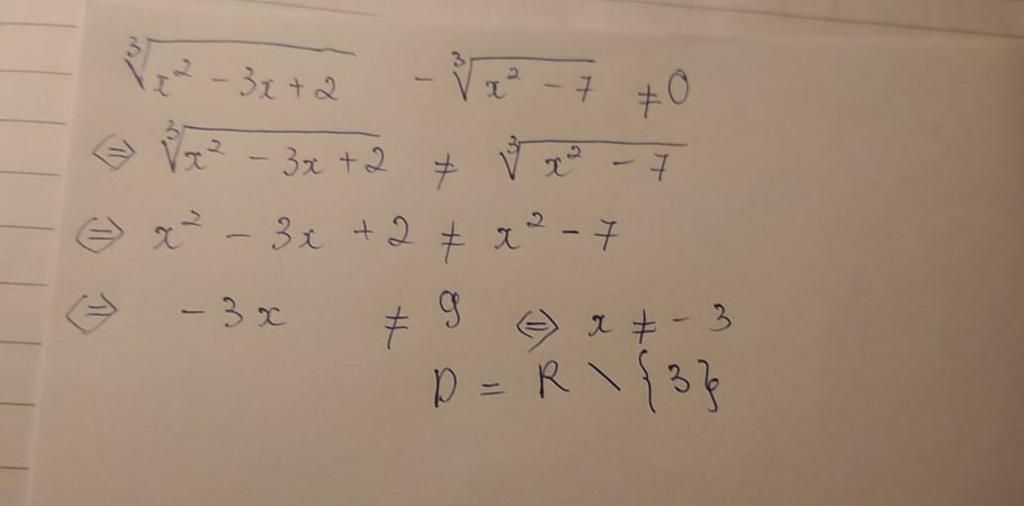 ∛(x² - 3x + 2) - ∛(x² - 7) ≠ 0
⇔ ∛(x² - 3x + 2) ≠ ∛(x² - 7)
⇔ x² - 3x + 2 ≠ x² - 7
⇔ - 3x ≠ 9 ⇔ x ≠ - 3
D = R \ {3}